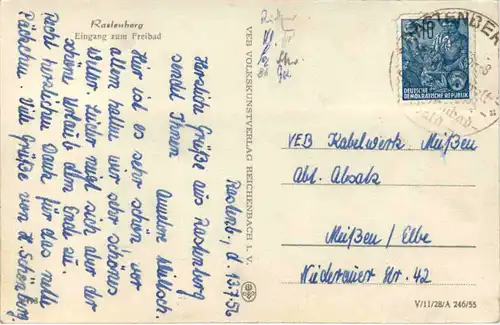 Rastenberg
Eingang zum Freibad
Rastenb., d. 13.7.56
Herzliche Grüße aus Rastenberg
sendet Ihnen
Hier ist es sehr schön, vor
allem haben wir sehr schönes
Wetter. Leider neigt sich aber der
schöne Urlaub dem Ende zu.
Recht herzlichen Dank für das nette
Päckchen. Viele Grüße von H. Schönberg
VEB VOLKSKUNSTVERLAG REICHENBACH I. V.
DEUTSCHE
DEMOKRATISCHE REPUBLIK
5
VEB Kabelwerk Meißen
Abt. Absatz
Meißen / Elbe
Niederauer Str. 42
V/11/28/A 246/55